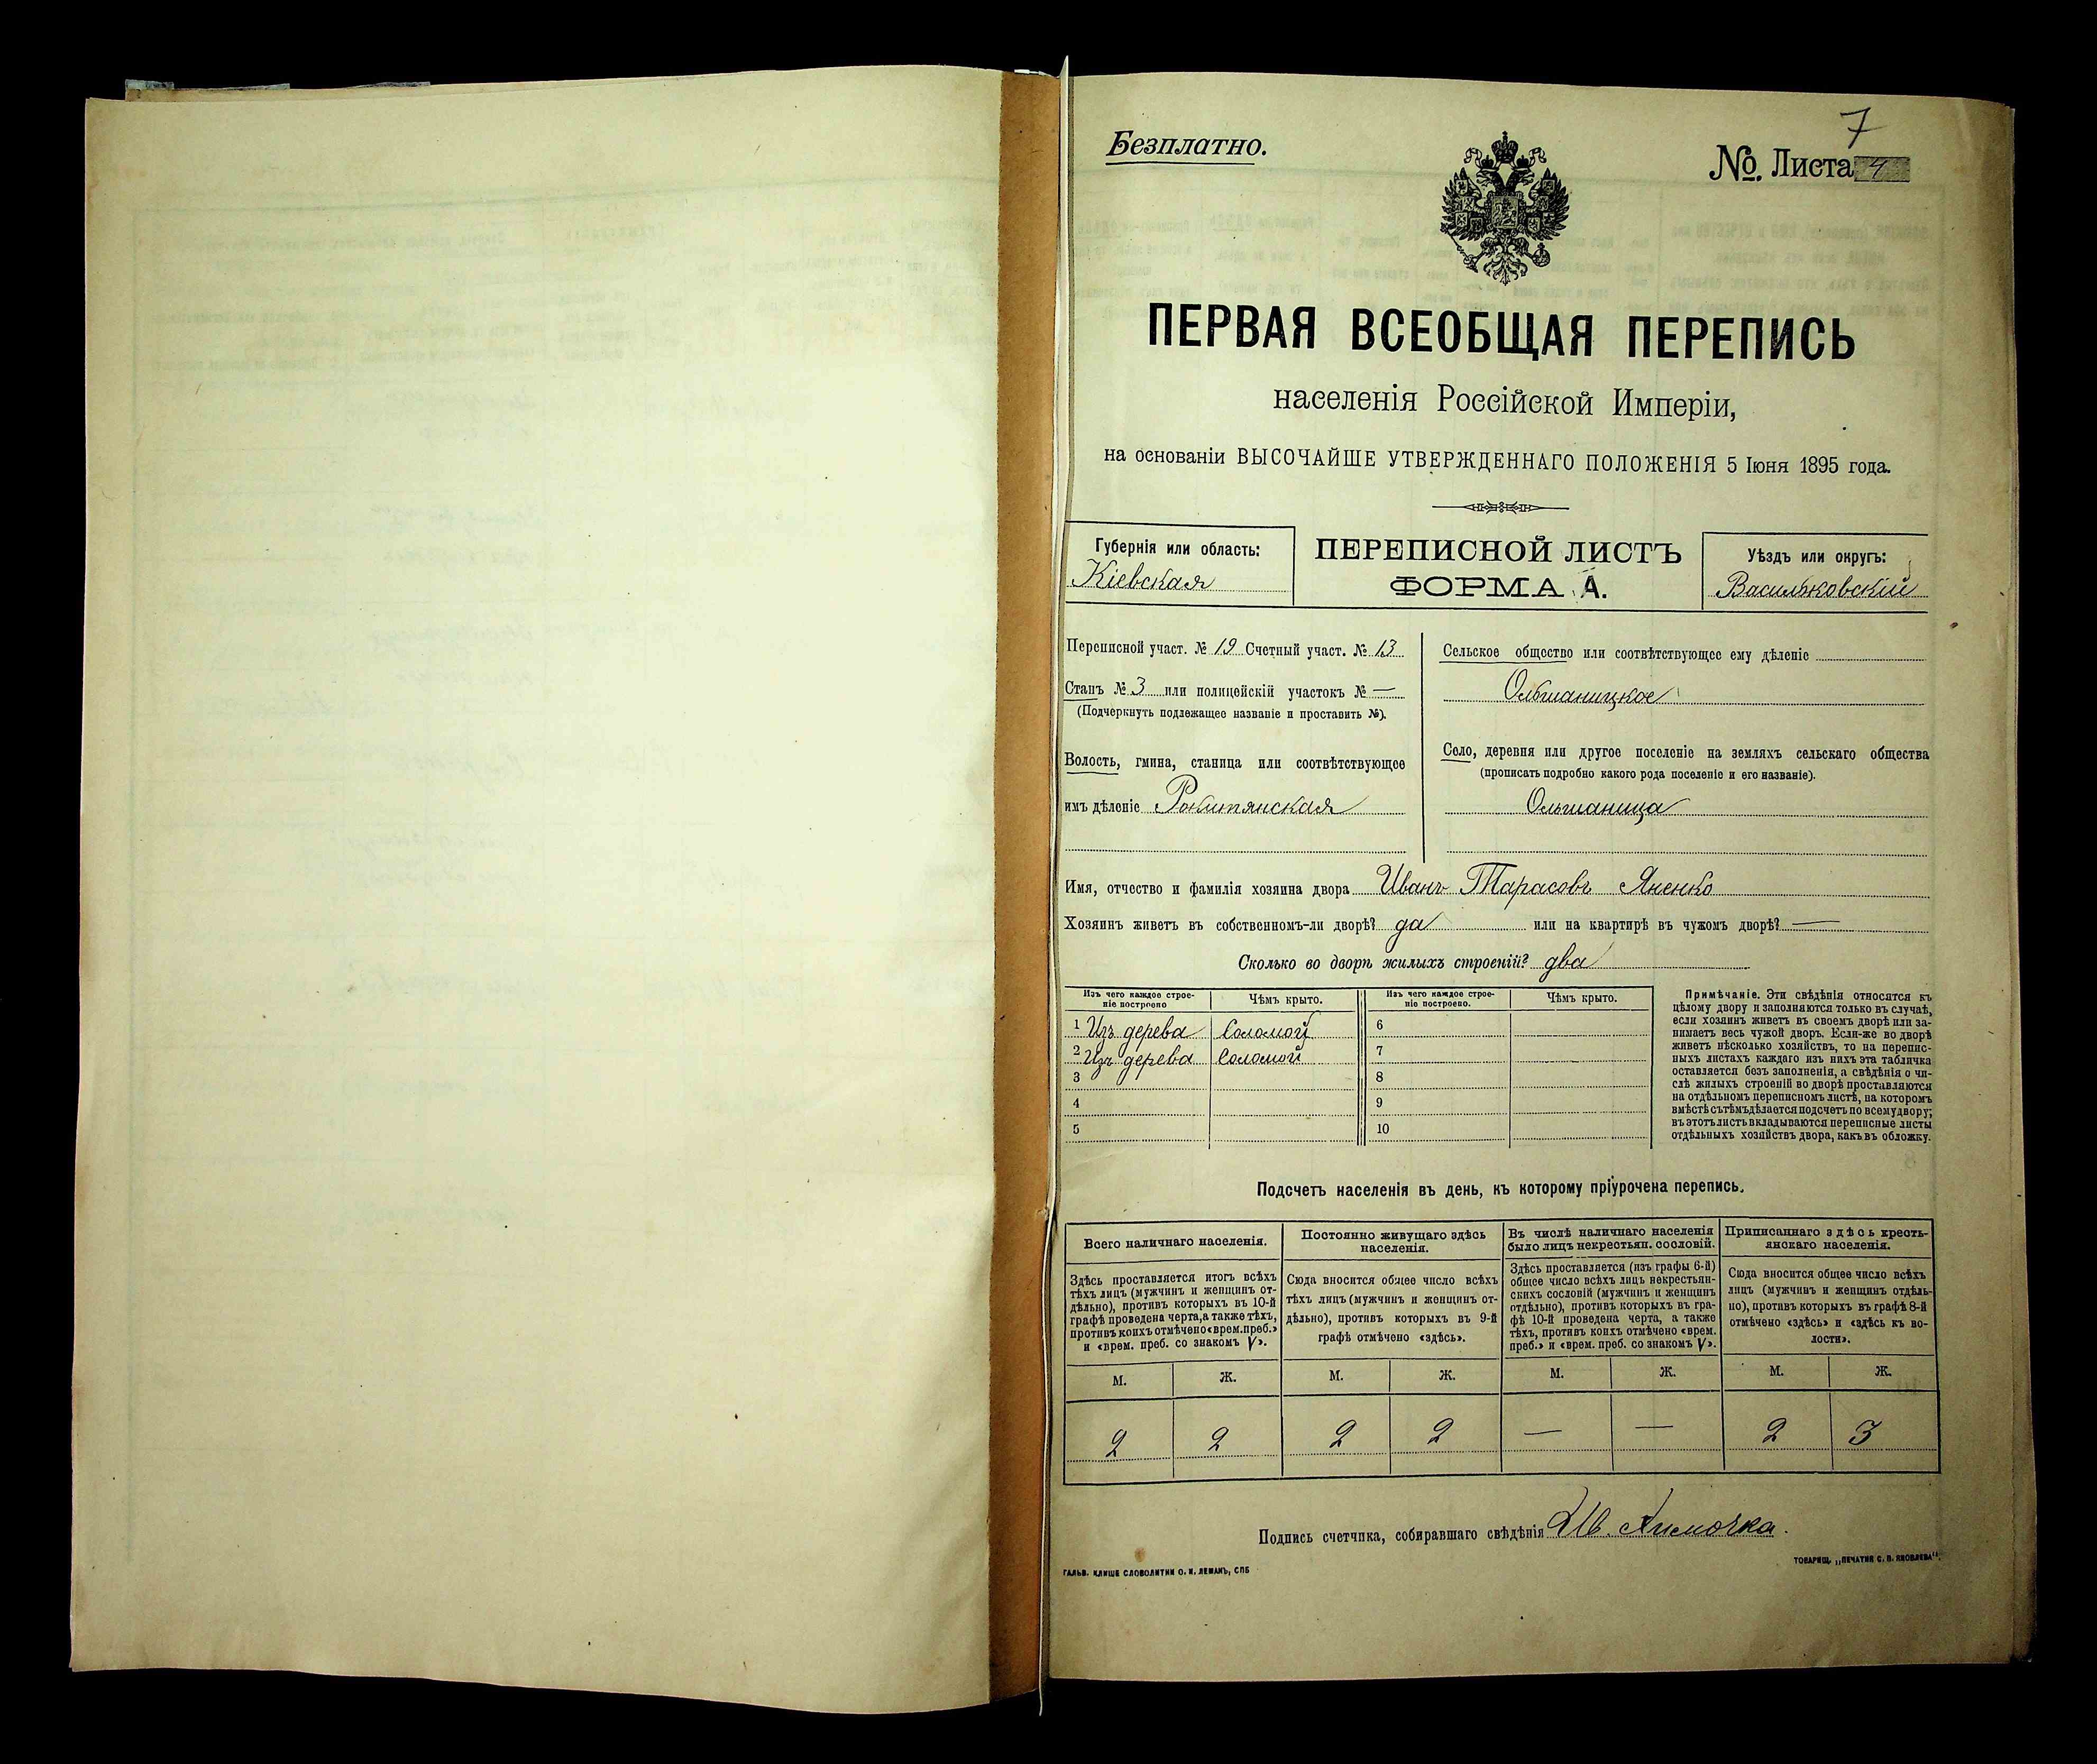 Безплатно.
7
№. Листа 4
ПЕРВАЯ ВСЕОБЩАЯ ПЕРЕПИСЬ
населенія Россійской Имперіи,
на основаніи ВЫСОЧАЙШЕ УТВЕРЖДЕННАГО ПОЛОЖЕНІЯ 5 Іюня 1895 года.
Губернія или область:
Кіевская
ПЕРЕПИСНОЙ ЛИСТЪ
ФОРМА А.
Уѣздъ или округъ:
Васильковскій
Переписной участ. № 19 Счетный участ. № 13
Станъ № 3 или полицейскій участокъ № —
(Подчеркнуть подлежащее названіе и проставить №).
Волость, гмина, станица или соотвѣтствующее
имъ дѣленіе Рокитянская
Сельское общество или соотвѣтствующее ему дѣленіе
Ольшаницкое
Село, деревня или другое поселеніе на земляхъ сельскаго общества
(прописать подробно какого рода поселеніе и его названіе).
Ольшаница
Имя, отчество и фамилія хозяина двора Иванъ Тарасовъ Яненко
Хозяинъ живетъ въ собственномъ-ли дворѣ? да или на квартирѣ въ чужомъ дворѣ? —
Сколько во дворѣ жилыхъ строеній? два
Изъ чего каждое строе-
ніе построено
Чѣмъ крыто.
Изъ чего каждое строе-
ніе построено.
Чѣмъ крыто.
1 Изъ дерева Соломой 6
2 Изъ дерева Соломой 7
3 8
4 9
5 10
Примѣчаніе. Эти свѣдѣнія относятся къ
цѣлому двору и заполняются только въ случаѣ,
если хозяинъ живетъ въ своемъ дворѣ или за-
нимаетъ весь чужой дворъ. Если-же во дворѣ
живетъ нѣсколько хозяйствъ, то на перепис-
ныхъ листахъ каждаго изъ нихъ эта табличка
оставляется безъ заполненія, а свѣдѣнія о чи-
слѣ жилыхъ строеній во дворѣ проставляются
на отдѣльномъ переписномъ листѣ, на которомъ
вмѣстѣ съ тѣмъ дѣлается подсчетъ по всему двору;
въ этотъ листъ вкладываются переписные листы
отдѣльныхъ хозяйствъ двора, какъ въ обложку.
Подсчетъ населенія въ день, къ которому пріурочена перепись.
Всего наличнаго населенія.
Постоянно живущаго здѣсь
населенія.
Въ числѣ наличнаго населенія
было лицъ некрестьян. сословій.
Приписаннаго здѣсь кресть-
янскаго населенія.
Здѣсь проставляется итогъ всѣхъ
тѣхъ лицъ (мужчинъ и женщинъ от-
дѣльно), противъ которыхъ въ 10-й
графѣ проведена черта, а также тѣхъ,
противъ коихъ отмѣчено «врем. преб.»
и «врем. преб. со знакомъ V».
Сюда вносится общее число всѣхъ
тѣхъ лицъ (мужчинъ и женщинъ от-
дѣльно), противъ которыхъ въ 9-й
графѣ отмѣчено «здѣсь».
Здѣсь проставляется (изъ графы 6-й)
общее число всѣхъ лицъ некрестьян-
скихъ сословій (мужчинъ и женщинъ
отдѣльно), противъ которыхъ въ гра-
фѣ 10-й проведена черта, а также
тѣхъ, противъ коихъ отмѣчено «врем.
преб.» и «врем. преб. со знакомъ V».
Сюда вносится общее число всѣхъ
лицъ (мужчинъ и женщинъ отдѣль-
но), противъ которыхъ въ графѣ 8-й
отмѣчено «здѣсь» и «здѣсь къ во-
лости».
М. Ж. М. Ж. М. Ж. М. Ж.
2 2 2 2 — — 2 3
Подпись счетчика, собиравшаго свѣдѣнія
ГАЛЬВ. КЛИШЕ СЛОВОЛИТНИ О. И. ЛЕМАНЪ, СПБ
ТОВАРИЩ. „ПЕЧАТНЯ С. П. ЯКОВЛЕВА“.